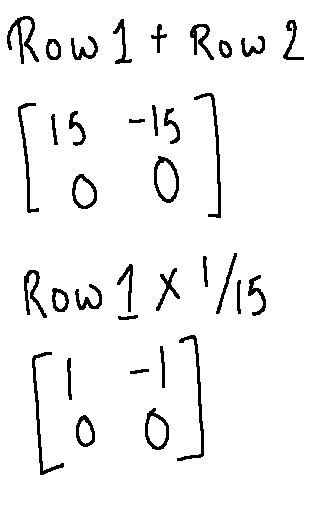 Row 1 + Row 2
[ 15 -15
0 0 ]
Row 1 X 1/15
[ 1 -1
0 0 ]